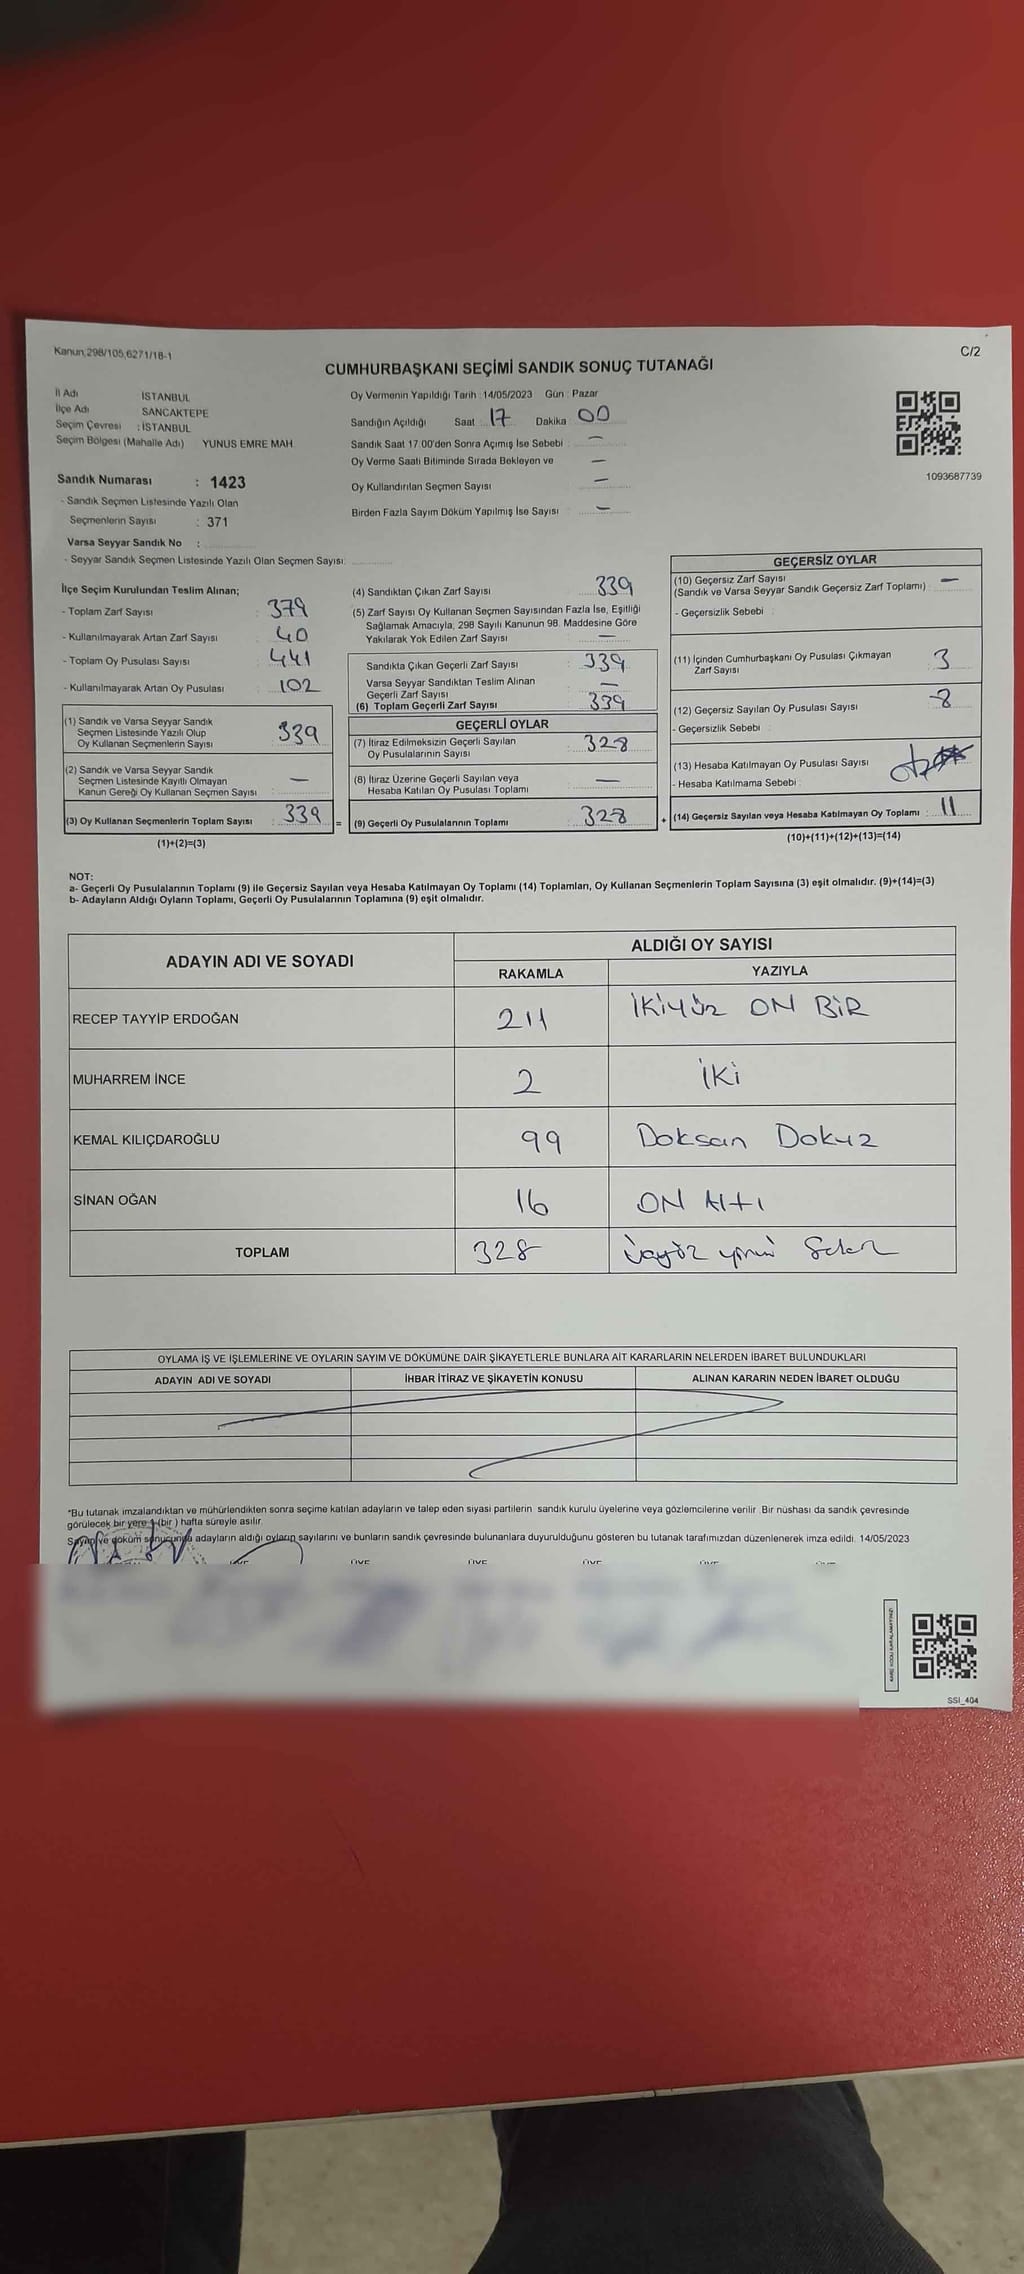 Kanun;298/105,6271/18-1
C/2
CUMHURBAŞKANI SEÇİMİ SANDIK SONUÇ TUTANAĞI
İl Adı İSTANBUL
İlçe Adı SANCAKTEPE
Seçim Çevresi : İSTANBUL
Seçim Bölgesi (Mahalle Adı) YUNUS EMRE MAH.
Sandık Numarası : 1423
- Sandık Seçmen Listesinde Yazılı Olan
Seçmenlerin Sayısı : 371
Varsa Seyyar Sandık No :
- Seyyar Sandık Seçmen Listesinde Yazılı Olan Seçmen Sayısı:
Oy Vermenin Yapıldığı Tarih : 14/05/2023 Gün : Pazar
Sandığın Açıldığı Saat : 17 Dakika : 00
Sandık Saat 17.00'den Sonra Açımış İse Sebebi : —
Oy Verme Saati Bitiminde Sırada Bekleyen ve —
Oy Kullandırılan Seçmen Sayısı —
Birden Fazla Sayım Döküm Yapılmış İse Sayısı : —
1093687739
İlçe Seçim Kurulundan Teslim Alınan;
- Toplam Zarf Sayısı : 379
- Kullanılmayarak Artan Zarf Sayısı : 40
- Toplam Oy Pusulası Sayısı : 441
- Kullanılmayarak Artan Oy Pusulası : 102
(1) Sandık ve Varsa Seyyar Sandık
Seçmen Listesinde Yazılı Olup
Oy Kullanan Seçmenlerin Sayısı : 339
(2) Sandık ve Varsa Seyyar Sandık
Seçmen Listesinde Kayıtlı Olmayan
Kanun Gereği Oy Kullanan Seçmen Sayısı : —
(3) Oy Kullanan Seçmenlerin Toplam Sayısı : 339 =
(1)+(2)=(3)
(4) Sandıktan Çıkan Zarf Sayısı : 339
(5) Zarf Sayısı Oy Kullanan Seçmen Sayısından Fazla İse, Eşitliği
Sağlamak Amacıyla, 298 Sayılı Kanunun 98. Maddesine Göre
Yakılarak Yok Edilen Zarf Sayısı : —
Sandıkta Çıkan Geçerli Zarf Sayısı : 339
Varsa Seyyar Sandıktan Teslim Alınan
Geçerli Zarf Sayısı : —
(6) Toplam Geçerli Zarf Sayısı : 339
GEÇERLİ OYLAR
(7) İtiraz Edilmeksizin Geçerli Sayılan
Oy Pusulalarının Sayısı : 328
(8) İtiraz Üzerine Geçerli Sayılan veya
Hesaba Katılan Oy Pusulası Toplamı : —
(9) Geçerli Oy Pusulalarının Toplamı : 328 +
GEÇERSİZ OYLAR
(10) Geçersiz Zarf Sayısı
(Sandık ve Varsa Seyyar Sandık Geçersiz Zarf Toplamı) : —
- Geçersizlik Sebebi :
(11) İçinden Cumhurbaşkanı Oy Pusulası Çıkmayan
Zarf Sayısı : 3
(12) Geçersiz Sayılan Oy Pusulası Sayısı : 8
- Geçersizlik Sebebi :
(13) Hesaba Katılmayan Oy Pusulası Sayısı :
- Hesaba Katılmama Sebebi :
(14) Geçersiz Sayılan veya Hesaba Katılmayan Oy Toplamı : 11
(10)+(11)+(12)+(13)=(14)
NOT:
a- Geçerli Oy Pusulalarının Toplamı (9) ile Geçersiz Sayılan veya Hesaba Katılmayan Oy Toplamı (14) Toplamları, Oy Kullanan Seçmenlerin Toplam Sayısına (3) eşit olmalıdır. (9)+(14)=(3)
b- Adayların Aldığı Oyların Toplamı, Geçerli Oy Pusulalarının Toplamına (9) eşit olmalıdır.
ADAYIN ADI VE SOYADI ALDIĞI OY SAYISI
RAKAMLA YAZIYLA
RECEP TAYYİP ERDOĞAN 211 İKİYÜZ ON BİR
MUHARREM İNCE 2 İKİ
KEMAL KILIÇDAROĞLU 99 Doksan Dokuz
SİNAN OĞAN 16 ON Altı
TOPLAM 328 üçyüz yirmi Sekiz
OYLAMA İŞ VE İŞLEMLERİNE VE OYLARIN SAYIM VE DÖKÜMÜNE DAİR ŞİKAYETLERLE BUNLARA AİT KARARLARIN NELERDEN İBARET BULUNDUKLARI
ADAYIN ADI VE SOYADI İHBAR İTİRAZ VE ŞİKAYETİN KONUSU ALINAN KARARIN NEDEN İBARET OLDUĞU
*Bu tutanak imzalandıktan ve mühürlendikten sonra seçime katılan adayların ve talep eden siyasi partilerin sandık kurulu üyelerine veya gözlemcilerine verilir. Bir nüshası da sandık çevresinde
görülecek bir yere 1 (bir) hafta süreyle asılır.
Sayım ve döküm sonucunda adayların aldığı oyların sayılarını ve bunların sandık çevresinde bulunanlara duyurulduğunu gösteren bu tutanak tarafımızdan düzenlenerek imza edildi. 14/05/2023
ÜYE ÜYE ÜYE ÜYE ÜYE
SSI_404